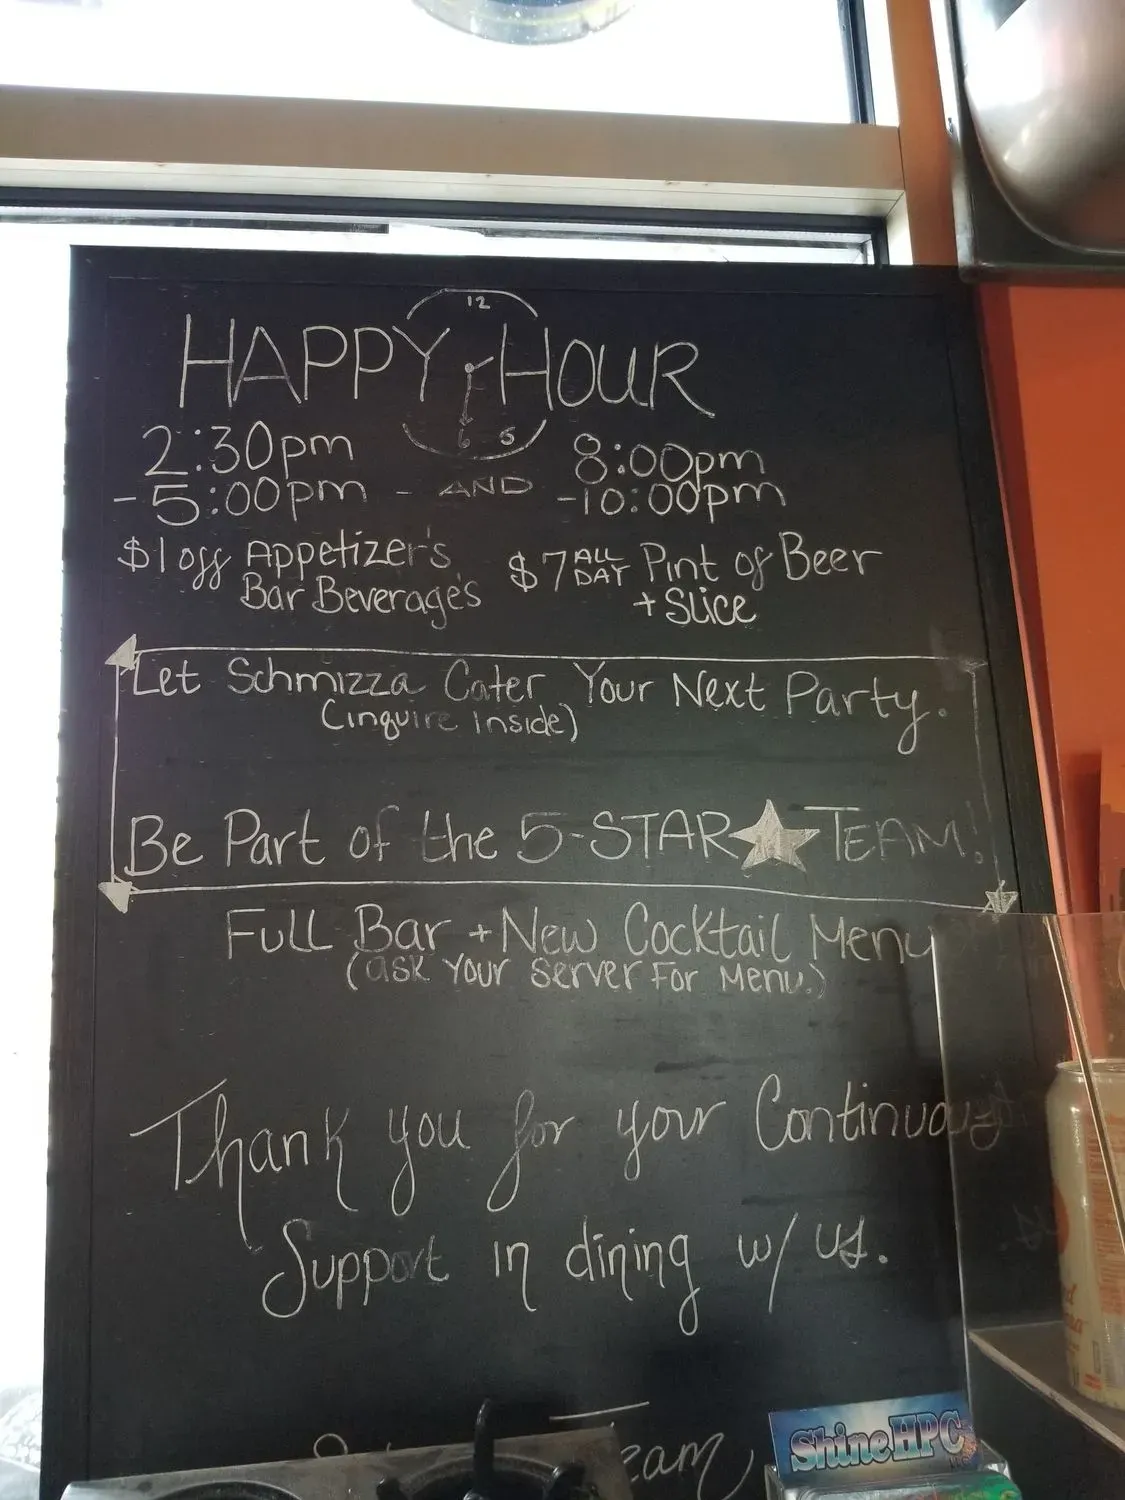 12
HAPPY HOUR
6 5
2:30pm
-5:00pm - AND
8:00pm
-10:00pm
$1 off Appetizer's
Bar Beverage's
$7 ALL DAY Pint of Beer
+ Slice
Let Schmizza Cater Your Next Party.
(inquire inside)
Be Part of the 5-STAR TEAM!
Full Bar + New Cocktail Menu
(ask Your Server For Menu.)
Thank you for your Continuous
Support in dining w/ us.
Team
Shine HPC